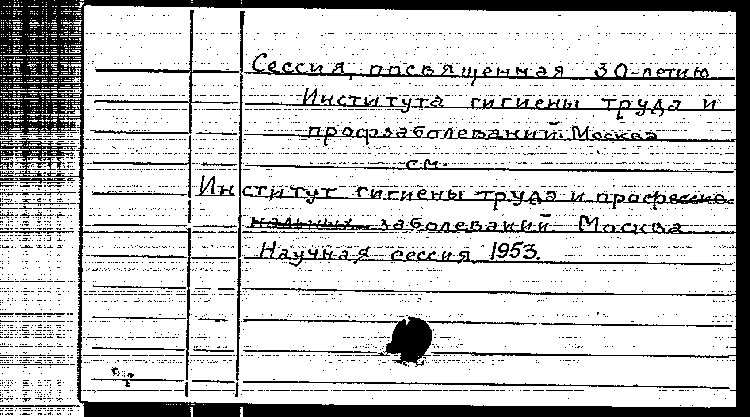 Сессия, посвященная 30-летию
Института гигиены труда и
профзаболеваний. Москва
см.
Институт гигиены труда и профессио-
нальных заболеваний. Москва.
Научная сессия. 1953.